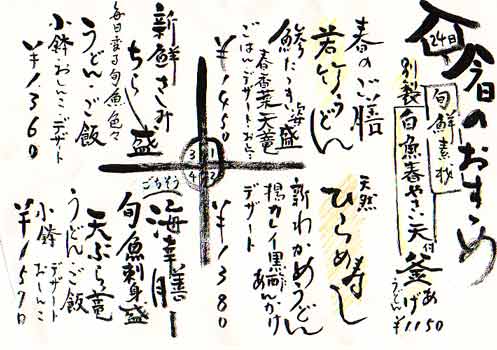 24日
今日のおすすめ
旬鮮素材
別製 白魚春やさい天付
釜あげうどん ¥1150
1
春のご膳
若竹うどん
鯵たつき海盛
春香菜天竜
ごはん・デザート・おしんこ
¥1450
2
天然
ひらめ寿し
新わかめうどん
揚カレイ黒酢あんかけ
デザート
¥1380
3
新鮮さしみ
ちらし盛
毎日変る旬魚色々
うどん・ご飯
小鉢・おしんこ・デザート
¥1360
4
ごちそう
海幸膳
旬魚刺身盛
天ぷら竜
うどん・ご飯
小鉢 デザート おしんこ
¥1570